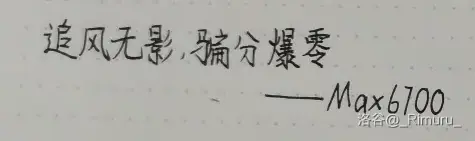 追风无影,骗分爆零
——Max6700
洛谷@_Rimuru_